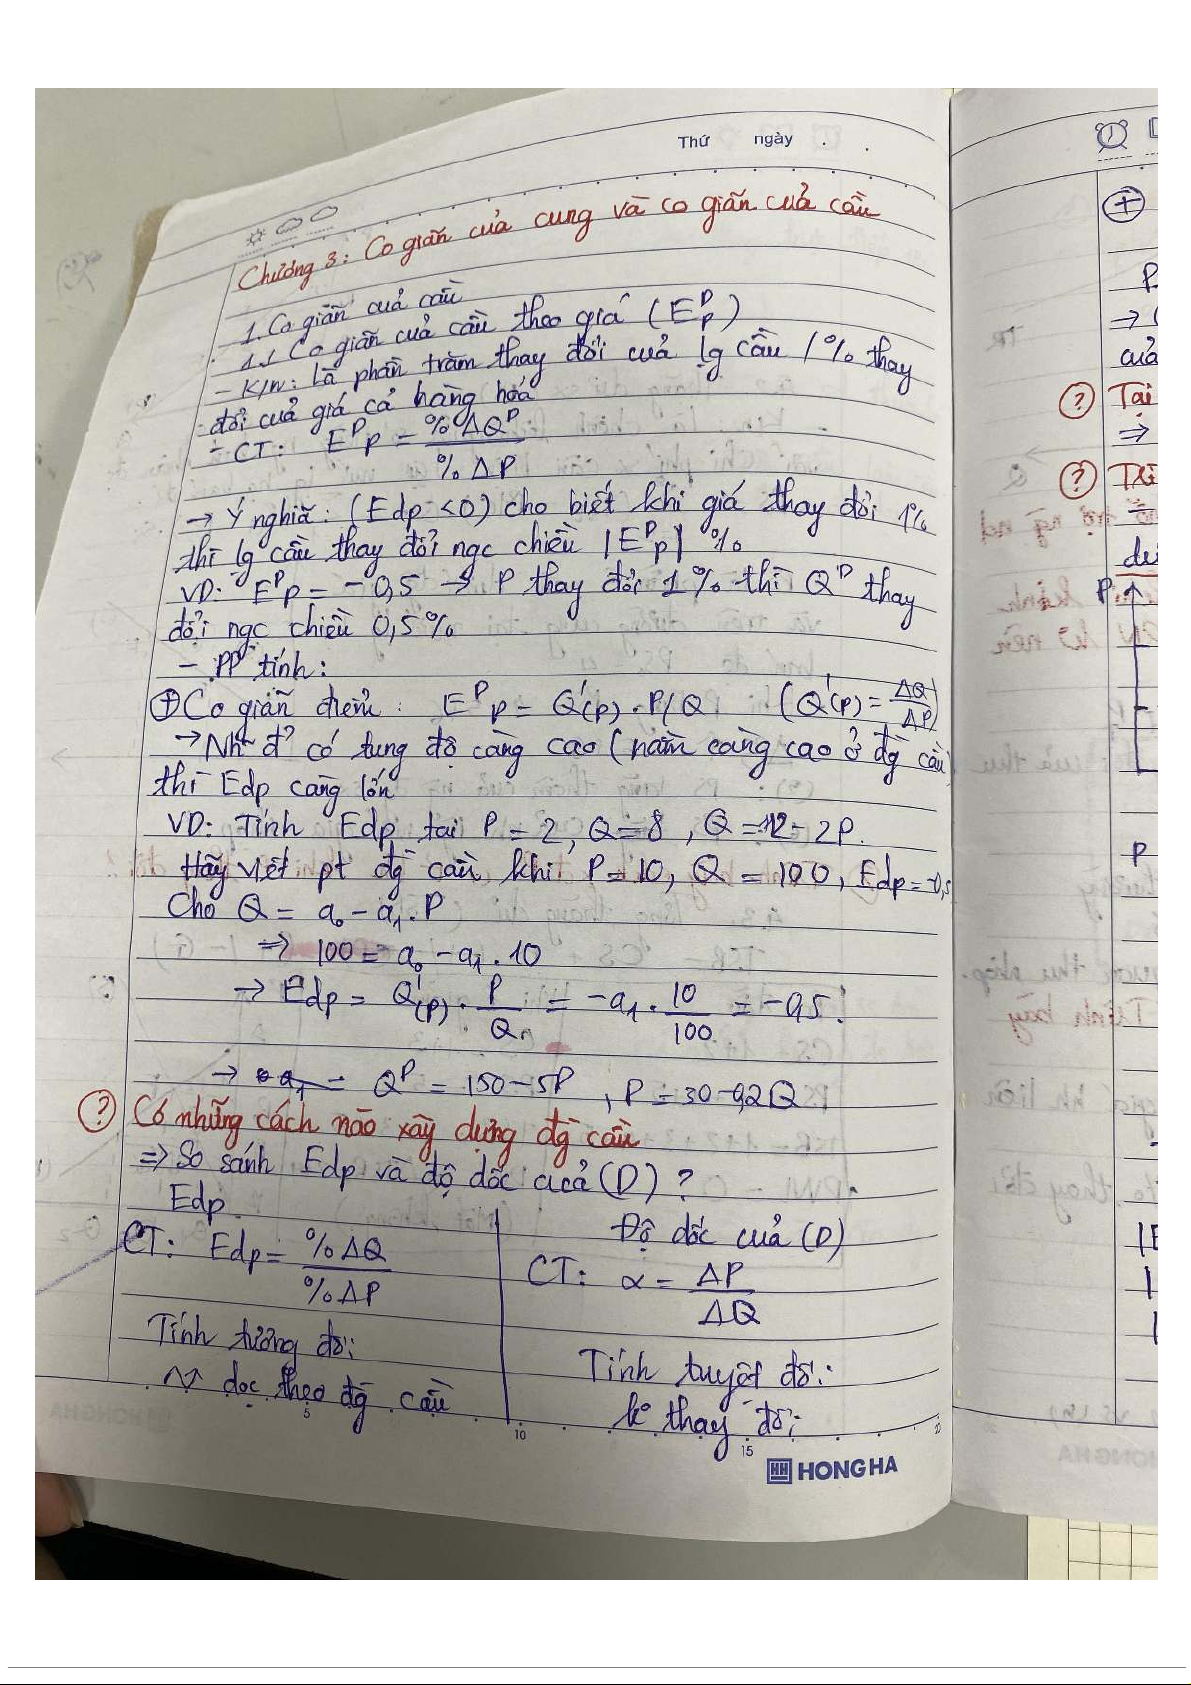 Thứ ngày . .
Chương 3: Co giãn của cung và co giãn của cầu
1. Co giãn của cầu
1.1 Co giãn của cầu theo giá (E^D_P)
- K/n: là phần trăm thay đổi của lg cầu 1% thay
đổi của giá cả hàng hoá
- CT: E^D_P = %ΔQ^D / %ΔP
→ Ý nghĩa: (Edp <0) cho biết khi giá thay đổi 1%
thì lg cầu thay đổi ngc chiều |E^D_P| %
VD: E^D_P = -0,5 → P thay đổi 1% thì Q^D thay
đổi ngc chiều 0,5%
- PP tính:
⊕ Co giãn điểm: E^D_P = Q'(p) . P/Q (Q'(p) = ΔQ/ΔP)
→ Nh~ đ' có tung độ càng cao (nằm càng cao ở đg cầu)
thì Edp càng lớn
VD: Tính Edp tại P = 2, Q = 8, Q = 12 - 2P.
Hãy viết pt đg cầu khi P = 10, Q = 100, Edp = -0,5
Cho Q = a₀ - a₁.P
⇒ 100 = a₀ - a₁.10
→ Edp = Q'(p) . P/Q = -a₁ . 10/100 = -0,5.
→ Q^D = 150 - 5P, P = 30 - 0,2Q
? Có những cách nào xây dựng đg cầu
⇒ So sánh Edp và độ dốc của (D) ?
Edp
Độ dốc của (D)
CT: Edp = %ΔQ / %ΔP
CT: α = ΔP / ΔQ
Tính tương đối
dọc theo đg cầu
Tính tuyệt đối
k° thay đổi
5
10
15
HONG HA
P
⇒
của
? Tại
⇒
?
P
P
TR
Q